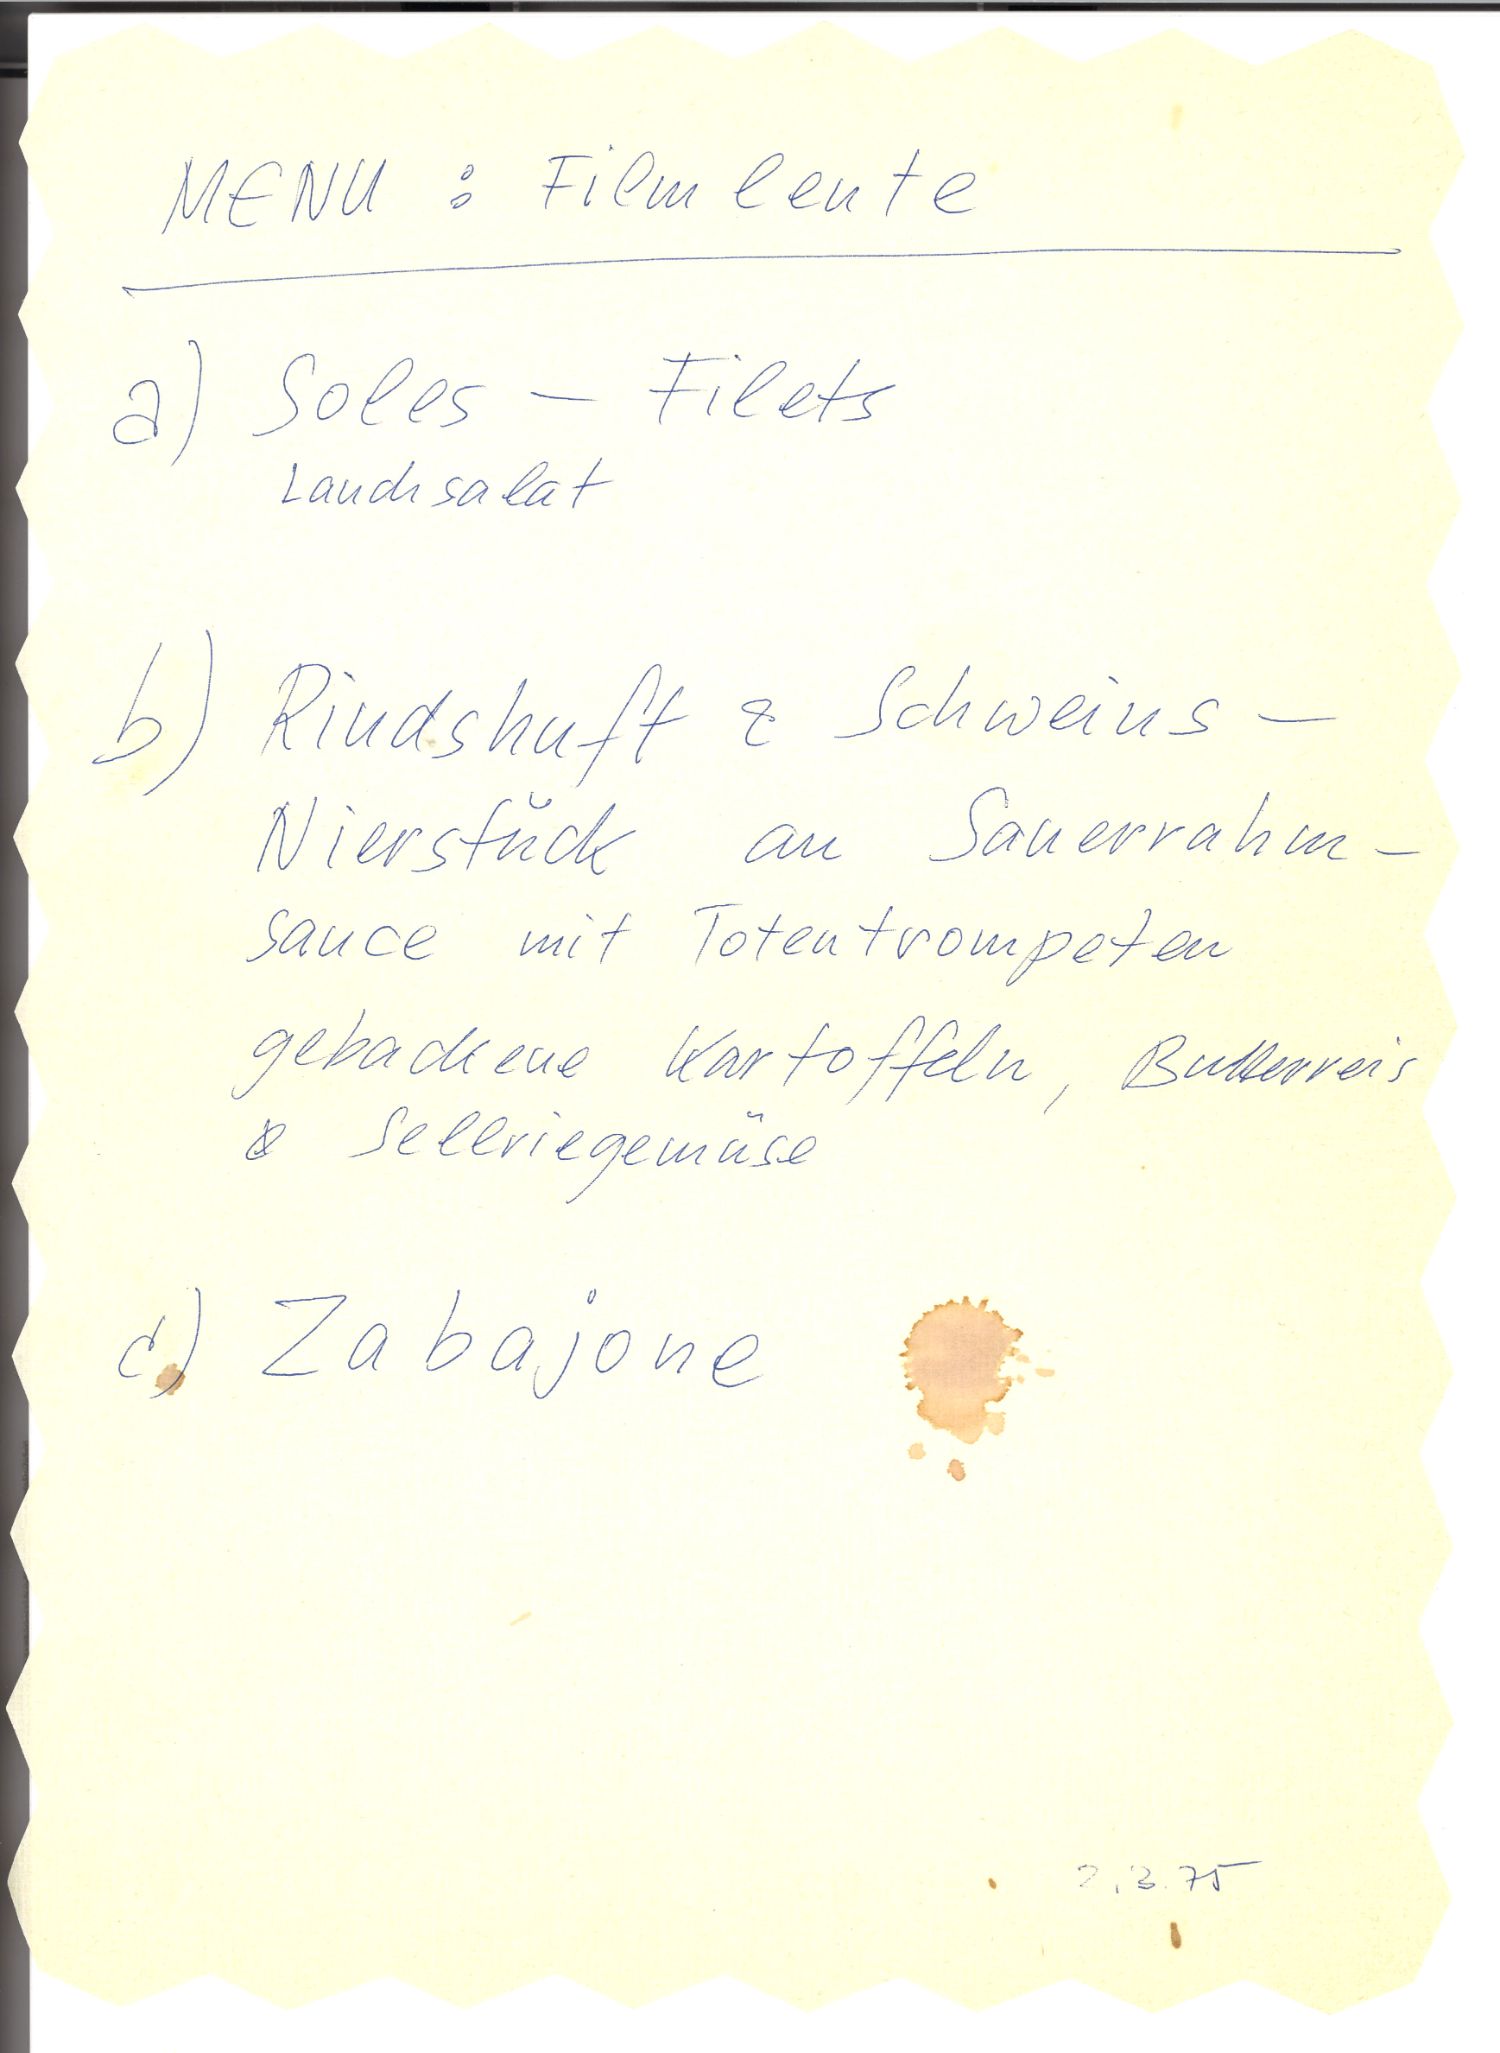 MENU : Filmleute
a) Soles – Filets
Lauchsalat
b) Rindshuft & Schweins –
Nierstück an Sauerrahm –
sauce mit Totentrompeten
gebackene Kartoffeln, Butterreis
& Sellriegemüse
c) Zabajone
2.3.75